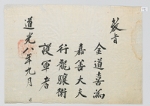 教旨
金道喜爲
嘉善大夫
行龍驤衛
護軍者
道光八年九月